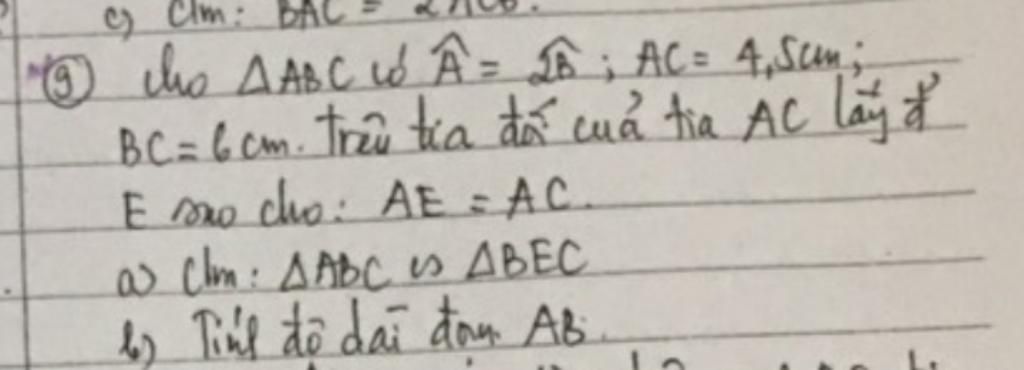 c) C/m: BAC = 2ACB.
9) Cho ΔABC có Â = 2B̂; AC = 4,5cm;
BC = 6cm. Trên tia đối của tia AC lấy đ
E sao cho: AE = AC.
a) C/m: ΔABC ∽ ΔBEC
b) Tính độ dài đoạn AB.